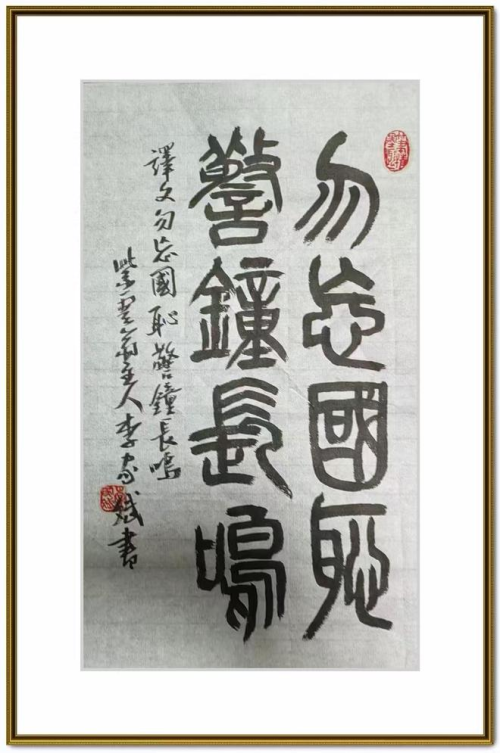 勿忘國恥
警鐘長鳴
譯文勿忘國恥警鐘長鳴
紫雲齋主人李家斌書